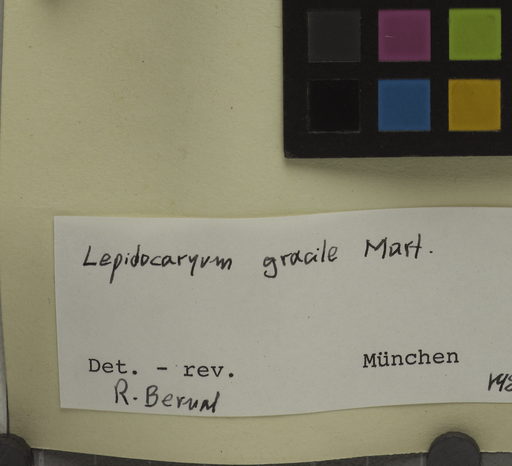 Lepidocaryum gracile Mart.
Det. - rev. München
R. Bernal